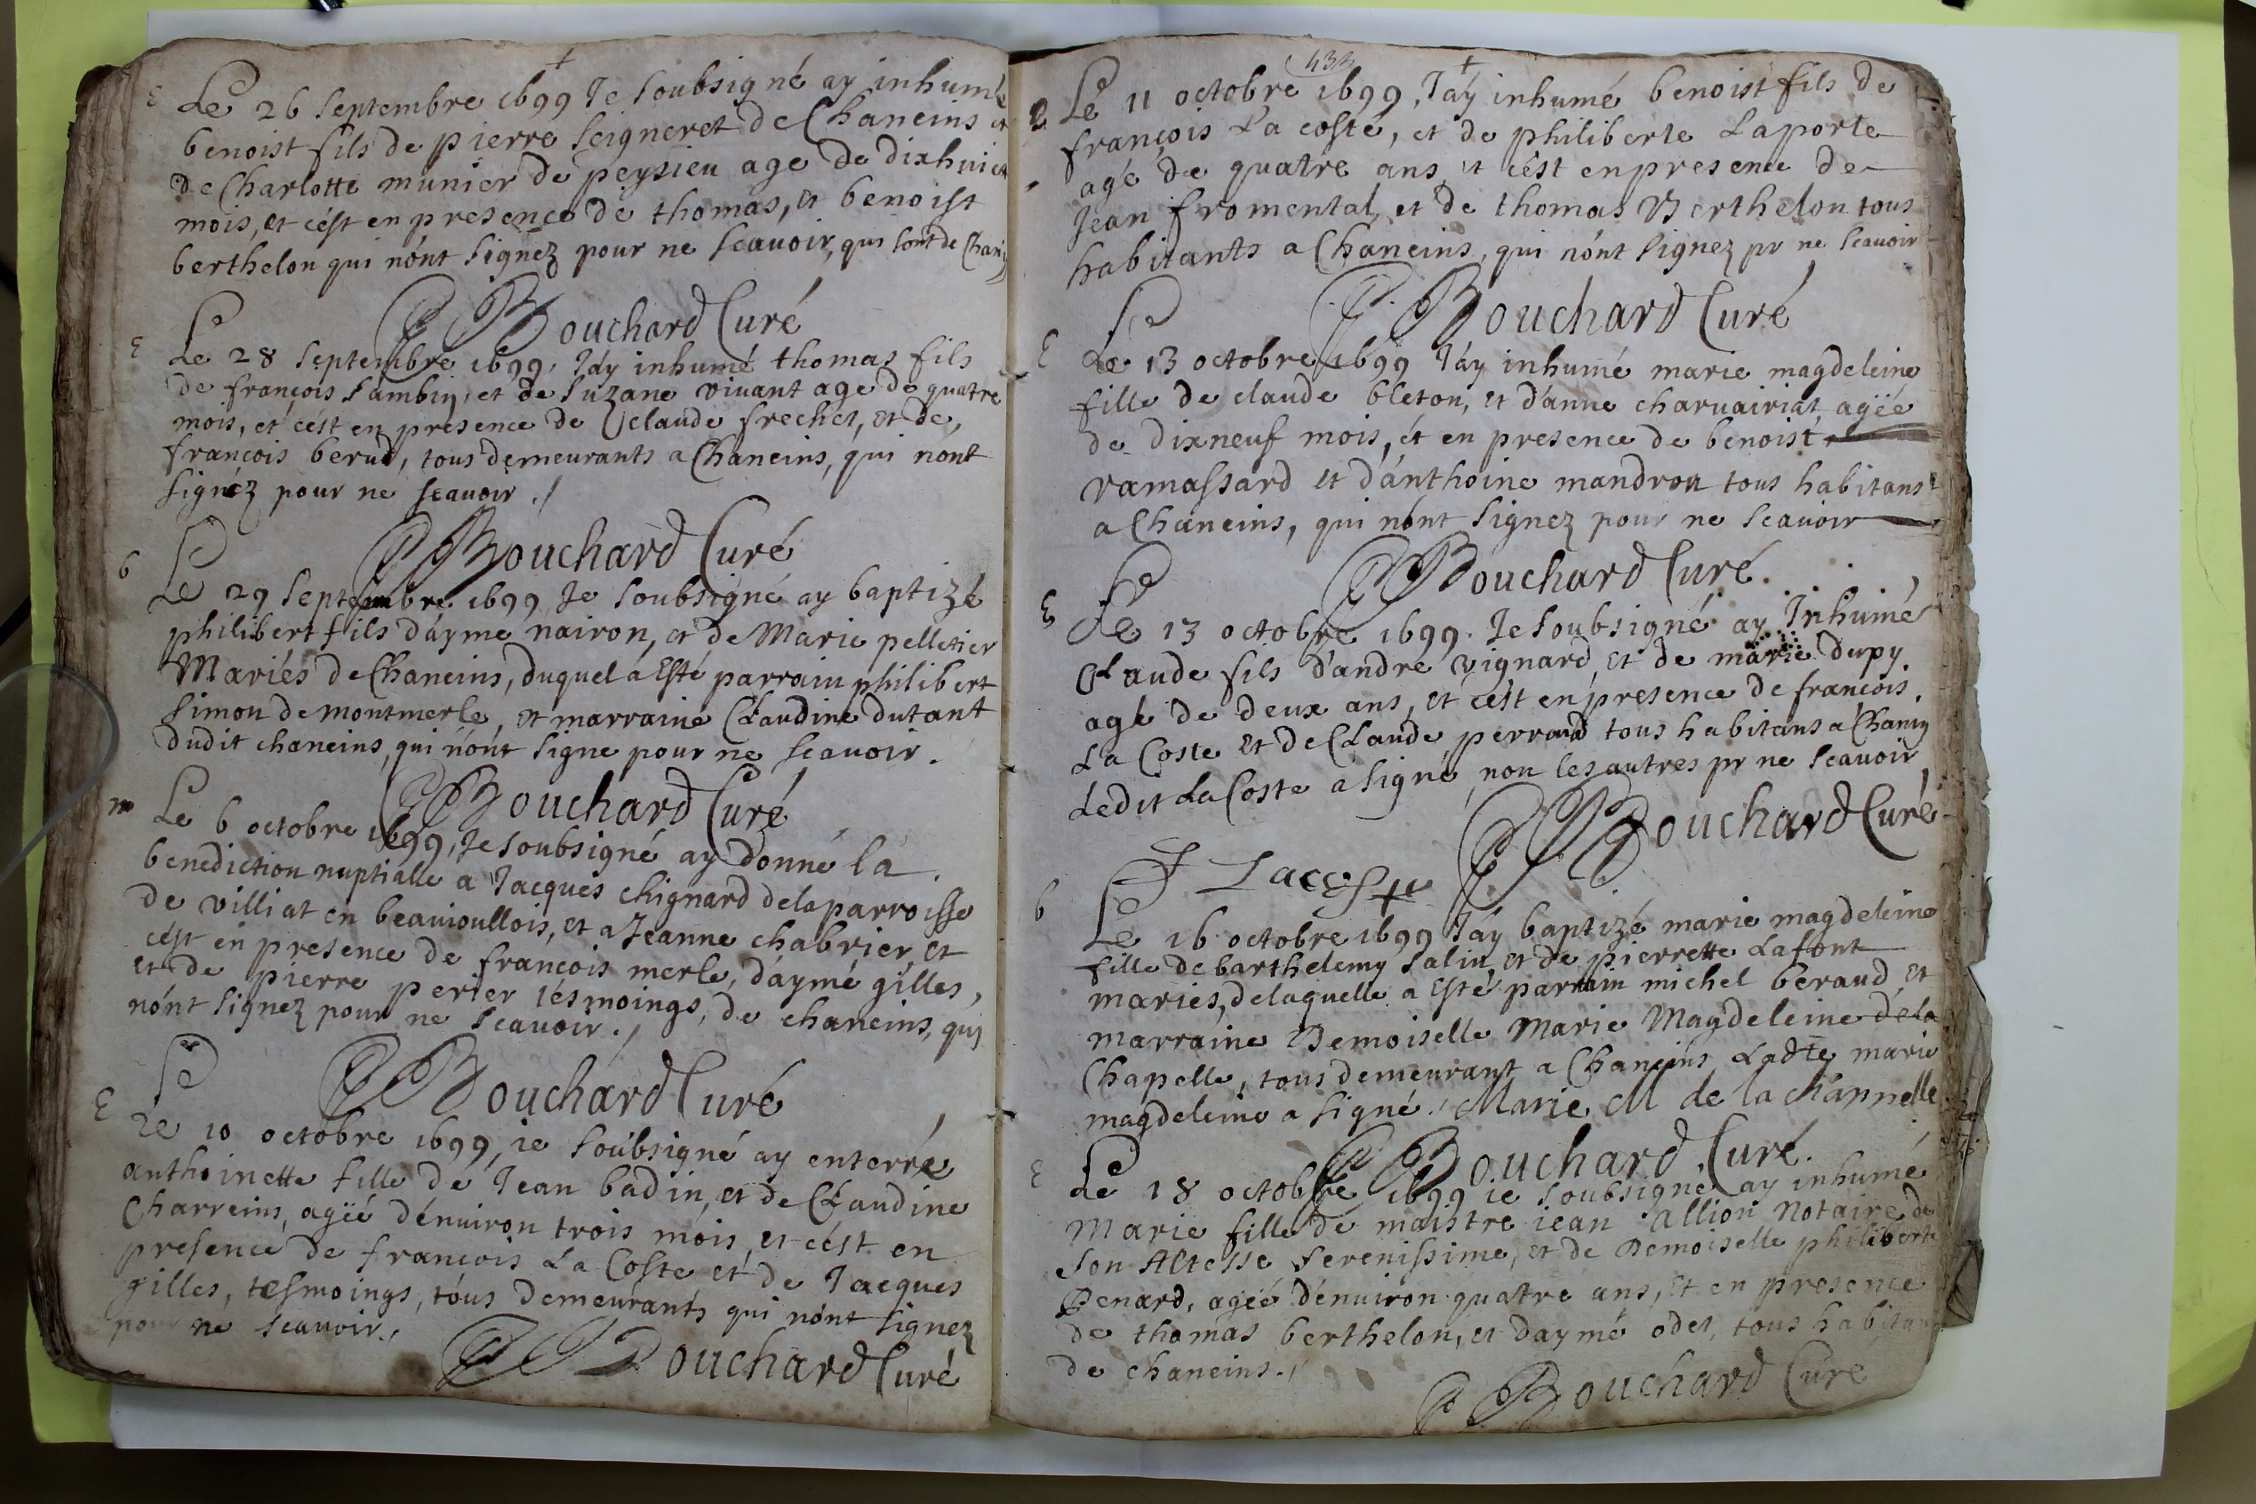 +
E Le 26 Septembre 1699 Je Soubsigné ay inhumé
benoist fils de pierre Seigneret de Chaneins et
de Charlotte munier de peysieu age de dixhuict
mois, et cést en presence de thomas, et benoist
berthelon qui nónt Signéz pour ne Scauoir, qui sont de Chanins
P Bouchard Curé
E Le 28 Septembre 1699, J'áy inhumé thomas fils
de françois Sambin, et de Suzane viuant age de quatre
mois, et cést en presence de Claude frechet, et de
françois berud, tous demeurants a Chaneins, qui nónt
Signéz pour ne Scauoir ./
P Bouchard Curé
b Le 29 Septembre 1699 Je Soubsigné ay baptizé
philibert fils dáyme nairon, et de Marie pelletier
Mariés de Chaneins, duquel a Esté parrain philibert
Simon de montmerle, et marraine Claudine dutant
dudit chaneins, qui nónt Signe pour ne Scauoir.
P Bouchard Curé
m Le 6 octobre 1699, Je Soubsigné ay donné la
benediction nuptialle a Jacques chignard dela parroisse
de villiat en beauioullois, et a Jeanne chabrier, et
cést en presence de françois merle, dáymé gilles,
et de pierre perier tésmoings, de chaneins, qui
nónt Signéz pour ne Scauoir ./
P Bouchard Curé
E Le 10 octobre 1699, ie Soubsigné ay enterré
anthoinette fille de Jean badin, et de Claudine
Charreins, agéé dénuiron trois mois, et cést en
presence de françois La Coste et de Jacques
gilles, tesmoings, tóus demeurants qui nónt Signez
pour ne Scauoir ./
P Bouchard Curé
434
+
E Le 11 octobre 1699, J'áy inhumé benoist fils de
françois La coste, et de philiberte Laporte
agé de quatre ans, et cést en presence de
Jean fromental, et de thomas Berthelon tous
habitants a Chaneins, qui nónt Signez pr ne Scauoir
P Bouchard Curé
E Le 13 octobre 1699 J'áy inhumé marie magdeleine
fille de claude bleton, et dánne charuairiat, agéé
de dixneuf mois, ét en presence de benoist
ramassard et dánthoine mandron tous habitans
a Chaneins, qui nónt Signez pour ne Scauoir
P Bouchard Curé.
E Le 13 octobre 1699. Je Soubsigné ay Inhumé
Claude fils dándré vignard, et de marie dupy
agé de deux ans, et cést en presence de françois
La Coste et de Claude perraud tous habitans a Chanin
Ledit La Coste a Signé, non les autres pr ne Scauoir
P Bouchard Curé
F Lacoste
b Le 16 octobre 1699 J'áy baptizé marie magdeleine
fille de barthelemy Salin, et de pierrette Lafont
mariés, delaquelle a Esté parrain michel beraud, et
marraine Demoiselle Marie Magdeleine de la
Chapelle, tous demeurant a Chaneins Ladte marie
magdeleine a Signé ./ Marie M de la chappelle
P Bouchard Curé.
E Le 18 octobre 1699 ie Soubsigné ay inhumé
Marie fille de maistre iean allion Notaire de
Son Altesse Serenissime, et de Demoiselle philiberte
Benard, agéé dénuiron quatre ans, et en presence
de thomas berthelon, et daymé odet, tous habitans
de chaneins ./
P Bouchard Curé